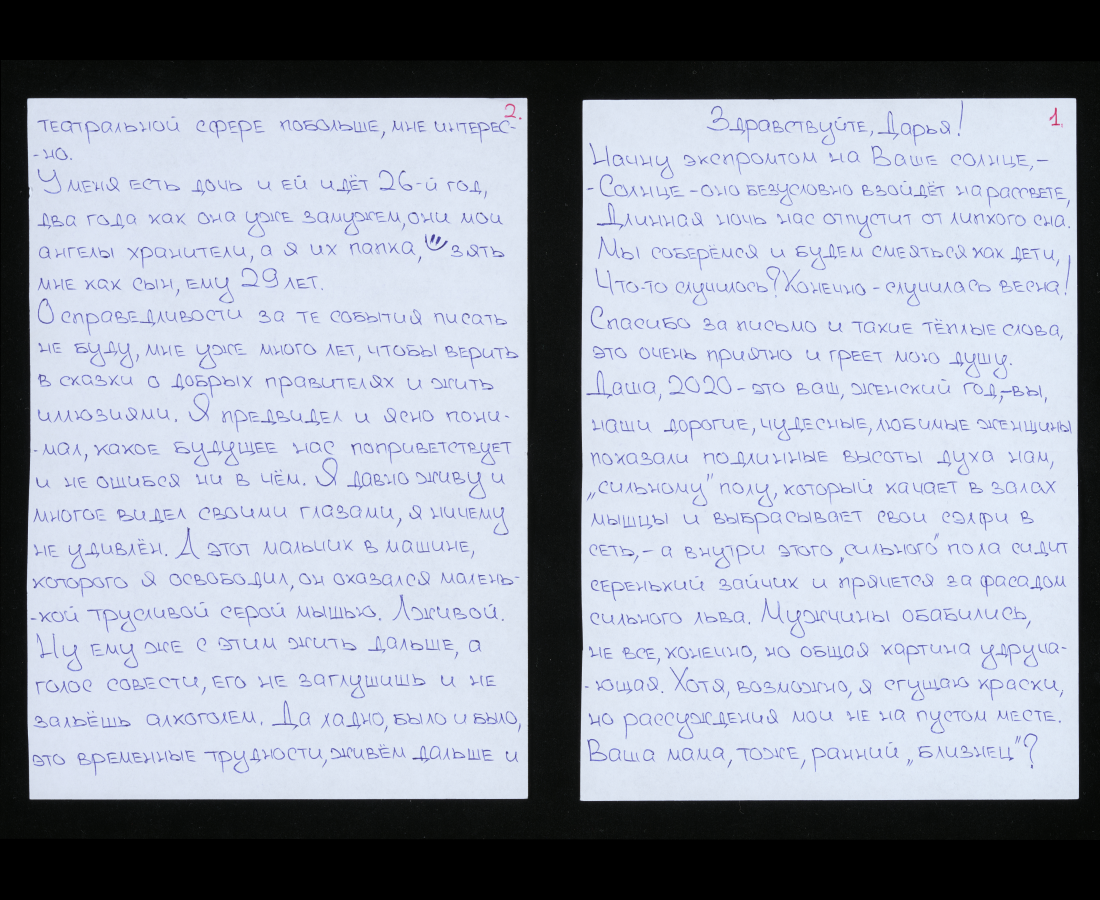 1.
Здравствуйте, Дарья!
Начну экспромтом на Ваше солнце,-
-Солнце - оно безусловно взойдёт на рассвете,
Длинная ночь нас отпустит от липкого сна.
Мы соберёмся и будем смеяться как дети,
Что-то случилось? Конечно - случилась весна!
Спасибо за письмо и такие тёплые слова,
это очень приятно и греет мою душу.
Даша, 2020 - это ваш, женский год,-вы,
наши дорогие, чудесные, любимые женщины
показали подлинные высоты духа нам,
„сильному" полу, который качает в залах
мышцы и выбрасывает свои сэлфи в
сеть,- а внутри этого „сильного" пола сидит
серенький зайчик и прячется за фасадом
сильного льва. Мужчины обабились,
не все, конечно, но общая картина удруча-
-ющая. Хотя, возможно, я сгущаю краски,
но рассуждения мои не на пустом месте.
Ваша мама, тоже, ранний „близнец"?
2.
театральной сфере побольше, мне интерес-
-но.
У меня есть дочь и ей идёт 26-й год,
два года как она уже замужем, они мои
ангелы хранители, а я их папка, зять
мне как сын, ему 29 лет.
О справедливости за те события писать
не буду, мне уже много лет, чтобы верить
в сказки о добрых правителях и жить
иллюзиями. Я предвидел и ясно пони-
-мал, какое будущее нас поприветствует
и не ошибся ни в чём. Я давно живу и
многое видел своими глазами, я ничему
не удивлён. А этот мальчик в машине,
которого я освободил, он оказался малень-
-кой трусливой серой мышью. Лживой.
Ну ему же с этим жить дальше, а
голос совести, его не заглушишь и не
зальёшь алкоголем. Да ладно, было и было,
это временные трудности, живём дальше и